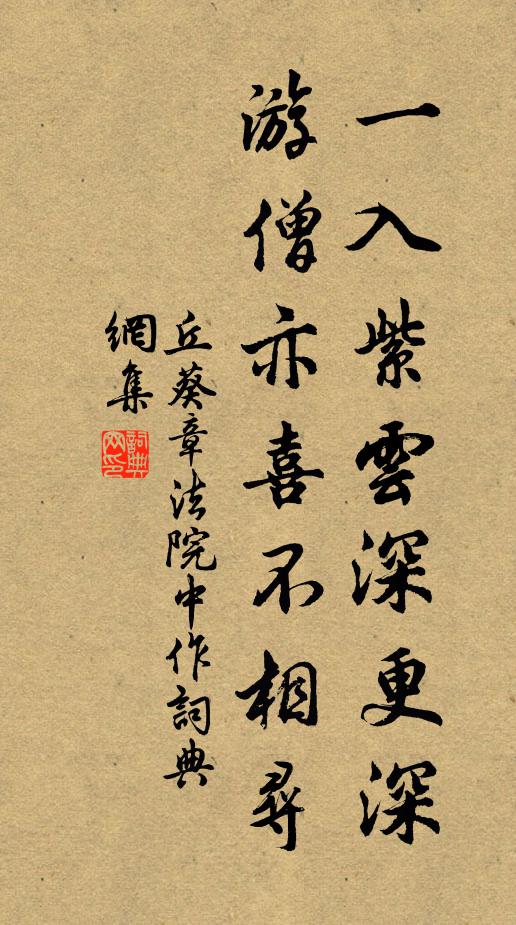 一入紫雲深更深
游僧亦喜不相尋
丘葵章法院中作詞典
網集
詞典網印